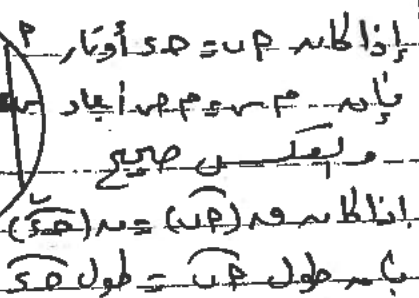 م
إذا كان م ب = ح د أوتار
فإن م س = م ص أبعاد
والعكس صحيح
إذا كان ق (م ب) = ق (ح د)
فإن طول م ب = طول ح د
ب